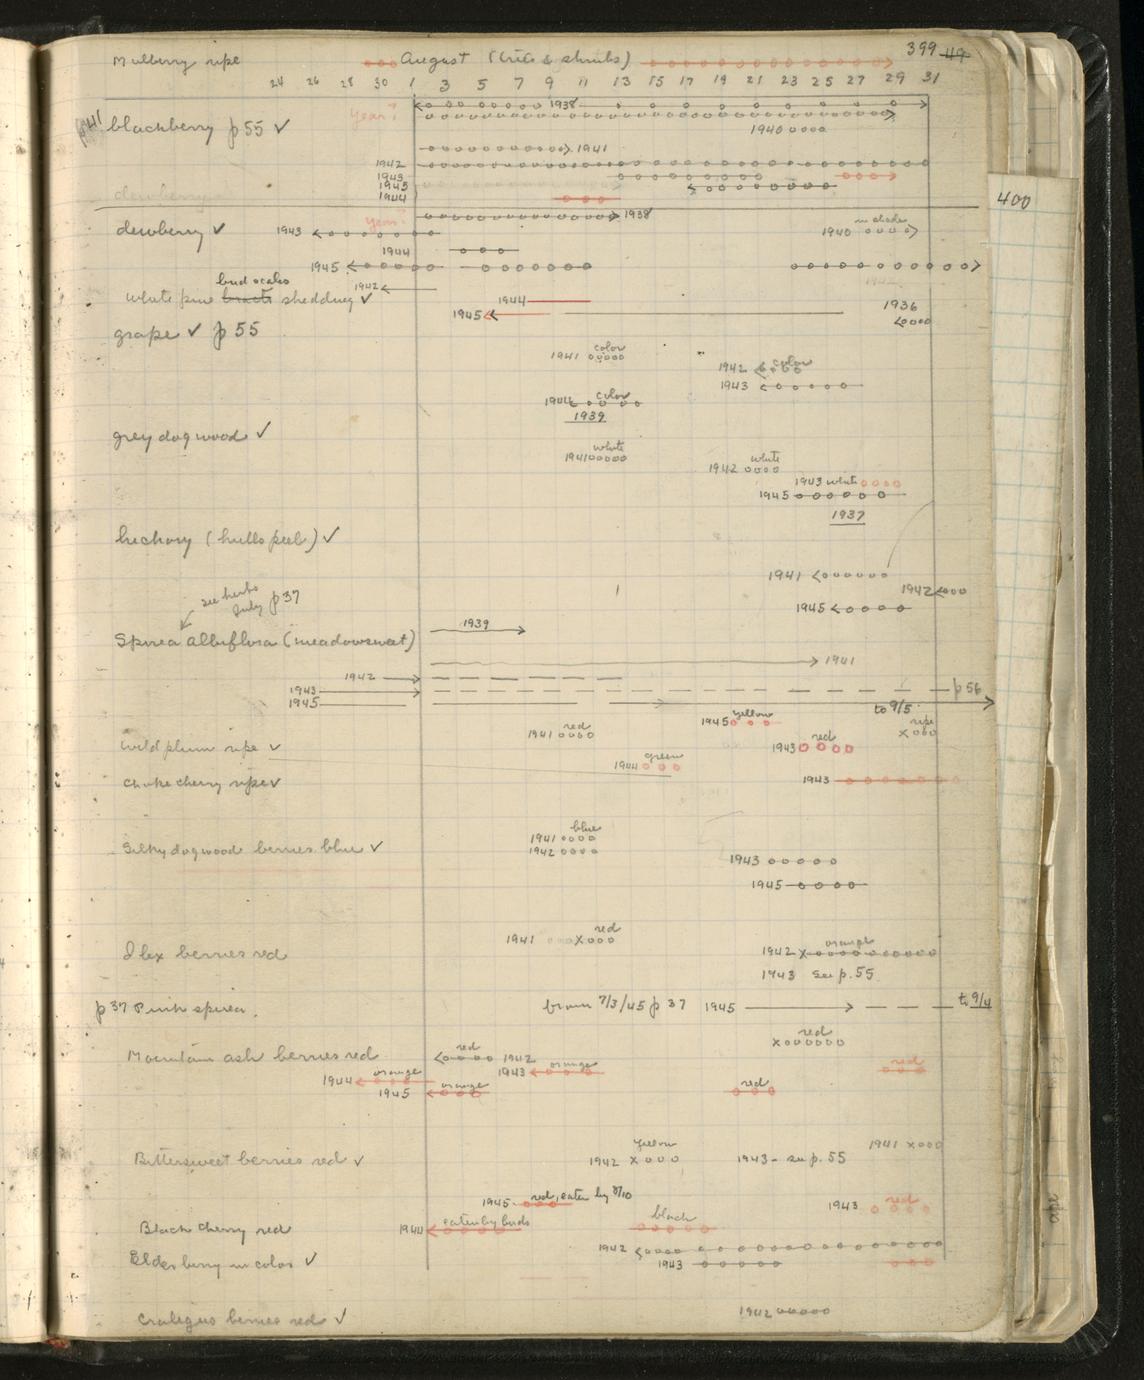 Mulberry ripe August (trees & shrubs) 399 49
24 26 28 30 1 3 5 7 9 11 13 15 17 19 21 23 25 27 29 31
Year? 1938
p41 blackberry p 55 ✓
1940
1941
1942
1943
1945
dewberry 1944
Year? 1938
400
dewberry ✓ 1943 1940 in shade
1944
1945
bud scales 1942 1942
white pine bracts shedding ✓ 1944 1936
1945
grape ✓ p 55
1941 color
1942 color
1943
1944 color
1939
grey dogwood ✓
1941 white
1942 white
1943 white
1945
1937
hickory (hulls peel) ✓
1941
1942
see herbs July p 37
1945
1939
Spirea albiflora (meadowsweet)
1941
1942
1943 p 56
1945 to 9/5
1941 red 1945 yellow ripe
wild plum ripe ✓ 1943 red
1944 green
Choke cherry ripe ✓ 1943
1941 blue
Silky dogwood berries blue ✓ 1942
1943
1945
1941 red
Ilex berries red 1942 orange
1943 see p. 55
p 37 Pink spirea. brown 7/3/45 p 37 1945 to 9/4
red
Mountain ash berries red red 1942
1943 orange red
1944 orange
1945 orange red
1941
Bittersweet berries red ✓ 1942 yellow 1943 - see p. 55
1945 red, eaten by 8/10
1943 red
Black cherry red 1944 eaten by birds black
1942
Elderberry in color ✓ 1943
Crategus berries red ✓ 1942